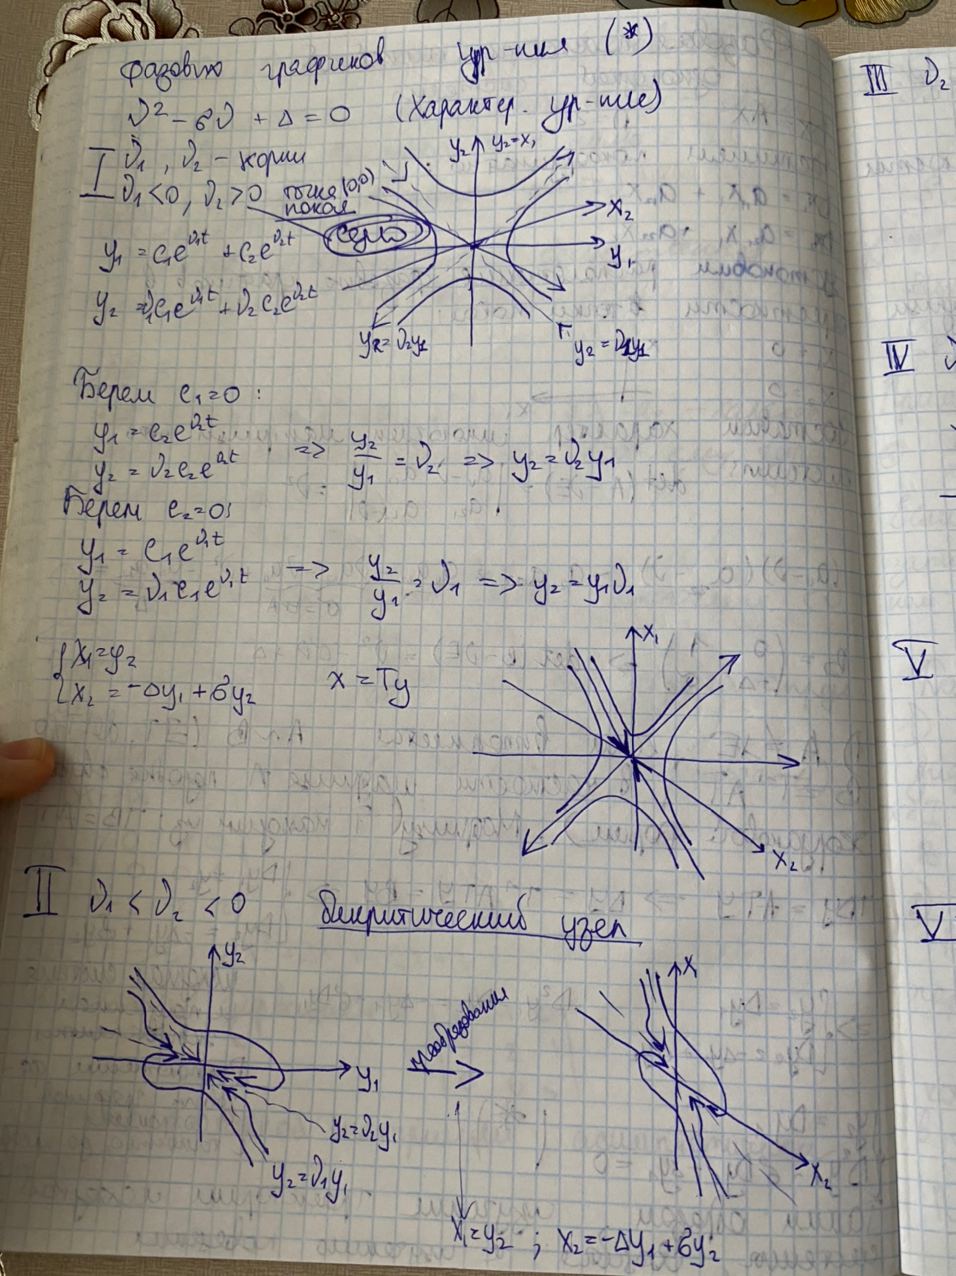 фазовых графиков ур-ния (*)
λ² - σλ + Δ = 0 (характер. ур-ние)
I λ₁, λ₂ - корни
λ₁ < 0, λ₂ > 0 точка (0,0)
покоя
седло
y₂ y₂=x₁
x₂
y₁
y₁ = c₁e^λ₁t + c₂e^λ₂t
y₂ = λ₁c₁e^λ₁t + λ₂c₂e^λ₂t
y₂=λ₂y₁ y₂=λ₁y₁
Берем c₁=0 :
y₁ = c₂e^λ₂t
y₂ = λ₂c₂e^λ₂t => y₂/y₁ = λ₂ => y₂=λ₂y₁
Берем c₂=0:
y₁ = c₁e^λ₁t
y₂ = λ₁c₁e^λ₁t => y₂/y₁ = λ₁ => y₂=y₁λ₁
{x₁=y₂
{x₂ = -Δy₁ + σy₂ x = Ty
x₁
x₂
II λ₁ < λ₂ < 0 бикритический узел
y₂ x₁
преобразования
y₁
y₂=λ₂y₁
y₂=λ₁y₁ x₂
x₁=y₂ ; x₂=-Δy₁+σy₂
III λ₂
IV λ
V
V